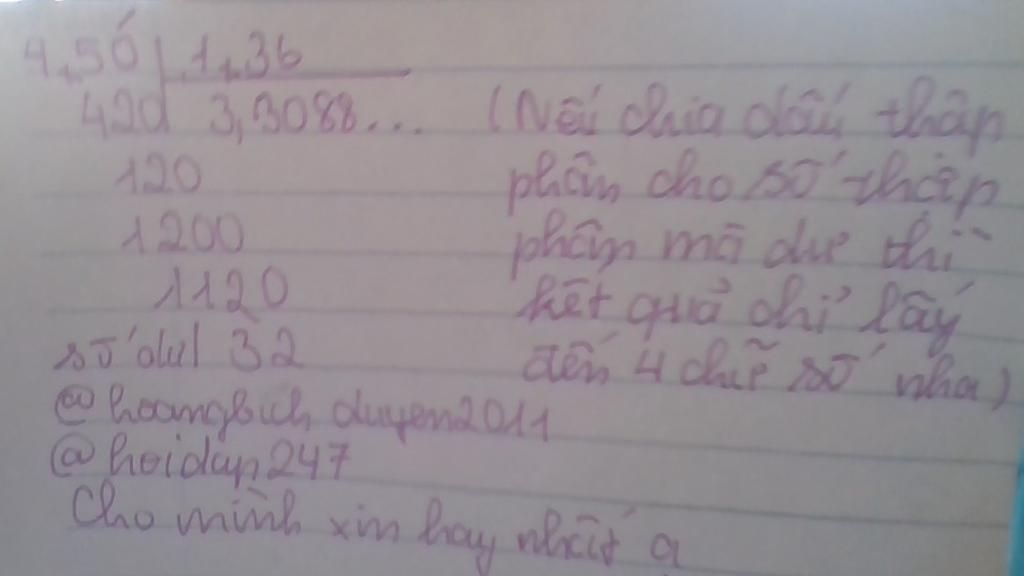 4,50 1,36
420 3,3088... (Nếu chia dấu thập
120 phân cho số thập
1200 phân mà dư thì
1120 kết quả chỉ lấy
số dư 32 đến 4 chữ số nha)
@hoangbich duyen2011
@hoidap247
Cho mình xin hay nhất ạ